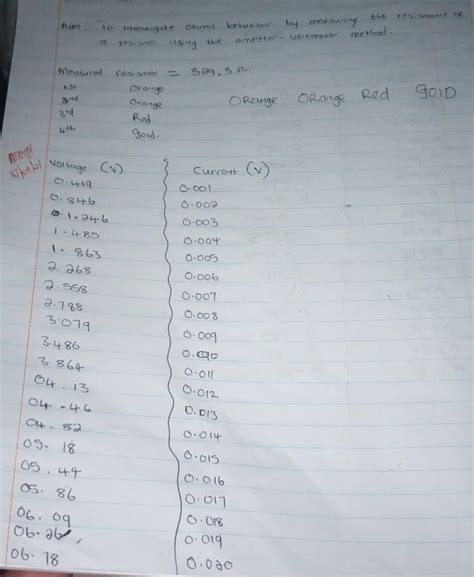 Aim: To investigate ohmic behaviour by measuring the resistance of
a resistor using the ammeter-voltmeter method.
Measured resistor = 329.3 Ω
1st Orange
2nd Orange
3rd Red
4th Gold.
ORange ORange Red GOlD
Voltage (V) Current (V)
0.419 0.001
0.846 0.002
0.1.246 0.003
1.485 0.004
1.863 0.005
2.268 0.006
2.558 0.007
2.788 0.008
3.079 0.009
3.486 0.010
3.864 0.011
04.13 0.012
04.46 0.013
04.82 0.014
05.18 0.015
05.44 0.016
05.86 0.017
06.09 0.018
06.26 0.019
06.78 0.020